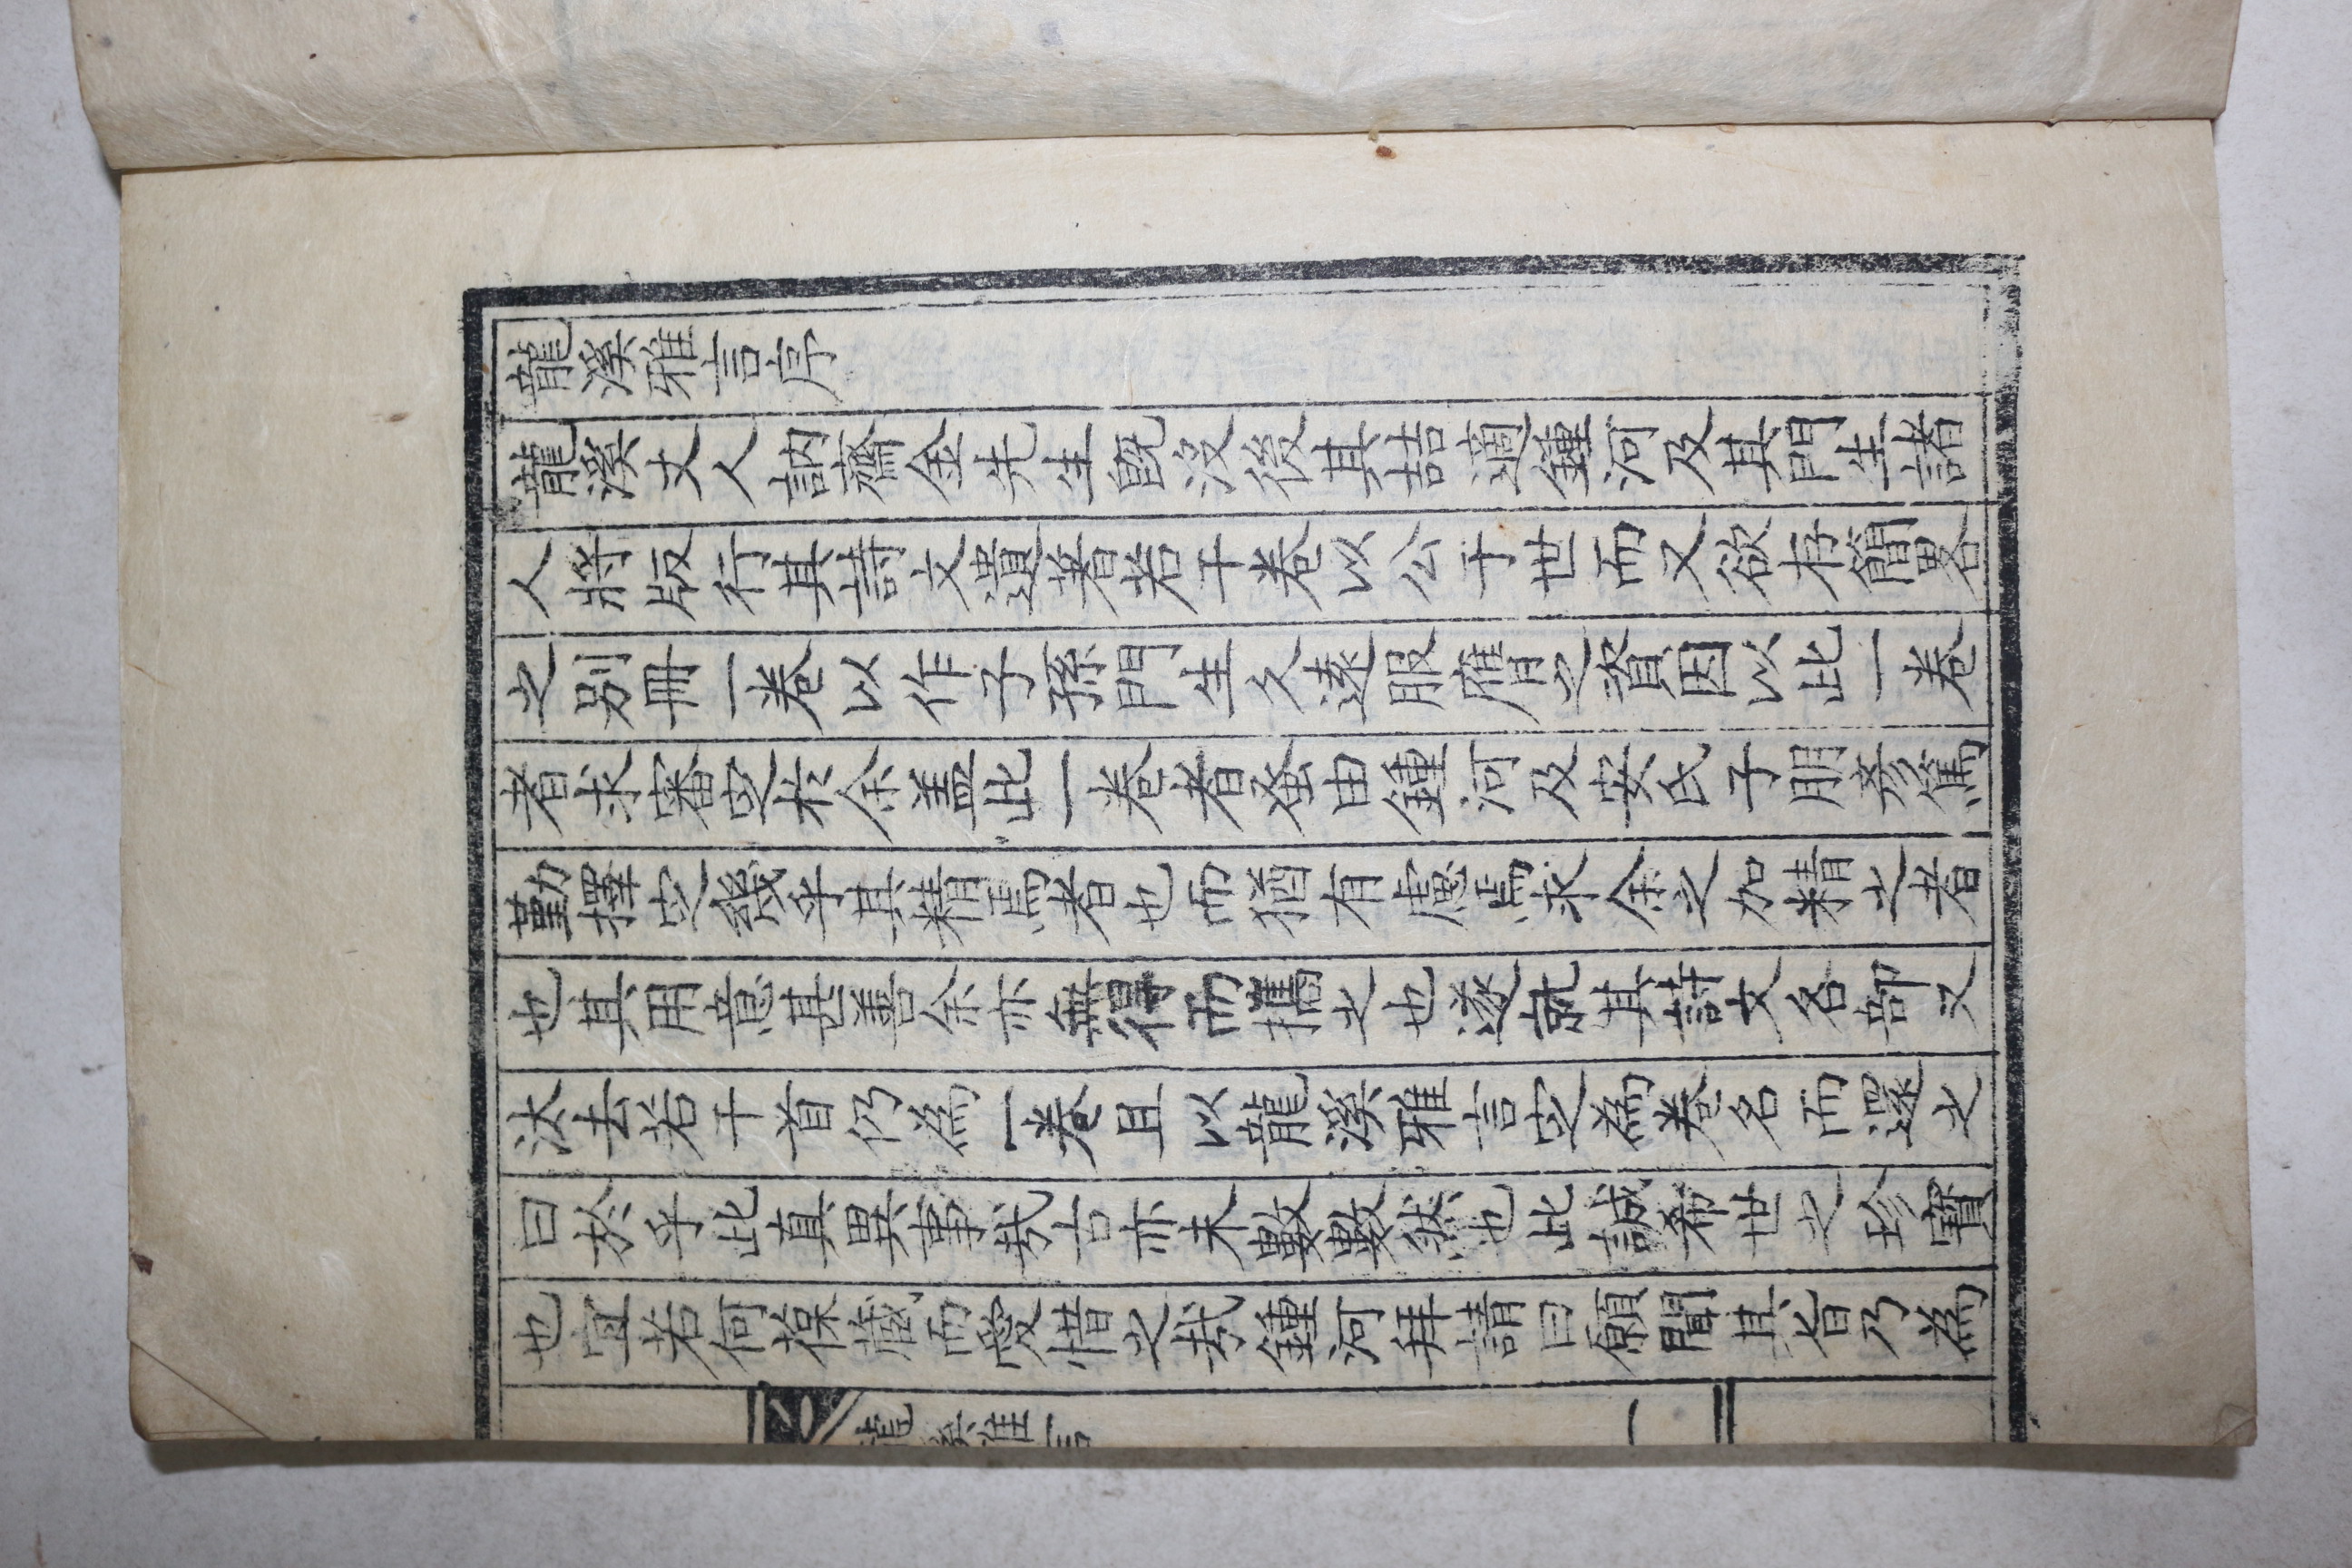 龍溪雅言序
龍溪丈人訥齋金先生旣沒後其喆嫡鍾河及其門生諸
人將版行其詩文遺著若干卷以公于世而又欲存簡畧
之別冊一卷以作子孫門生久遠服膺之資因以此一卷
者求審定於余盖此一卷者蚤由鍾河及安氏子朋彦篤
勤擇定幾乎其精焉者也而猶有慮焉求余之加精之者
也其用意甚善余亦無得而攜之也遂就其詩文各部又
汰去若干首仍爲一卷且以龍溪雅言定爲卷名而還之
曰於乎此眞異事哉古亦未數數然也此誠希世之珍寶
也宜若何葆藏而愛惜之哉鍾河拜請曰願聞其旨乃爲
龍溪雅言
一